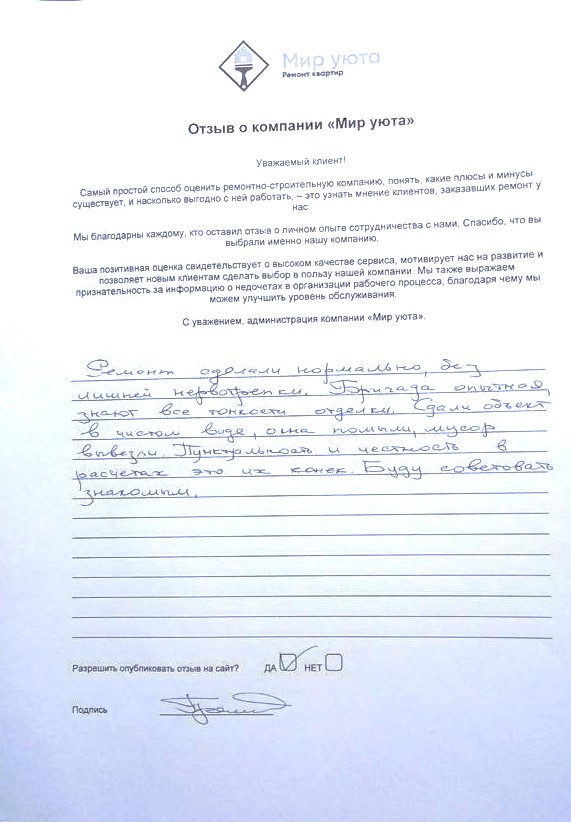 Мир уюта
Ремонт квартир
Отзыв о компании «Мир уюта»
Уважаемый клиент!
Самый простой способ оценить ремонтно-строительную компанию, понять, какие плюсы и минусы
существует, и насколько выгодно с ней работать, – это узнать мнение клиентов, заказавших ремонт у
нас
Мы благодарны каждому, кто оставил отзыв о личном опыте сотрудничества с нами. Спасибо, что вы
выбрали именно нашу компанию.
Ваша позитивная оценка свидетельствует о высоком качестве сервиса, мотивирует нас на развитие и
позволяет новым клиентам сделать выбор в пользу нашей компании. Мы также выражаем
признательность за информацию о недочетах в организации рабочего процесса, благодаря чему мы
можем улучшить уровень обслуживания.
С уважением, администрация компании «Мир уюта».
Ремонт сделали нормально, без
лишней нервотрепки. Бригада опытная,
знают все тонкости отделки. Сдали объект
в чистом виде, окна помыли, мусор
вывезли. Пунктуальность и честность в
расчетах это их конек. Буду советовать
знакомым.
Разрешить опубликовать отзыв на сайт? ДА НЕТ
Подпись